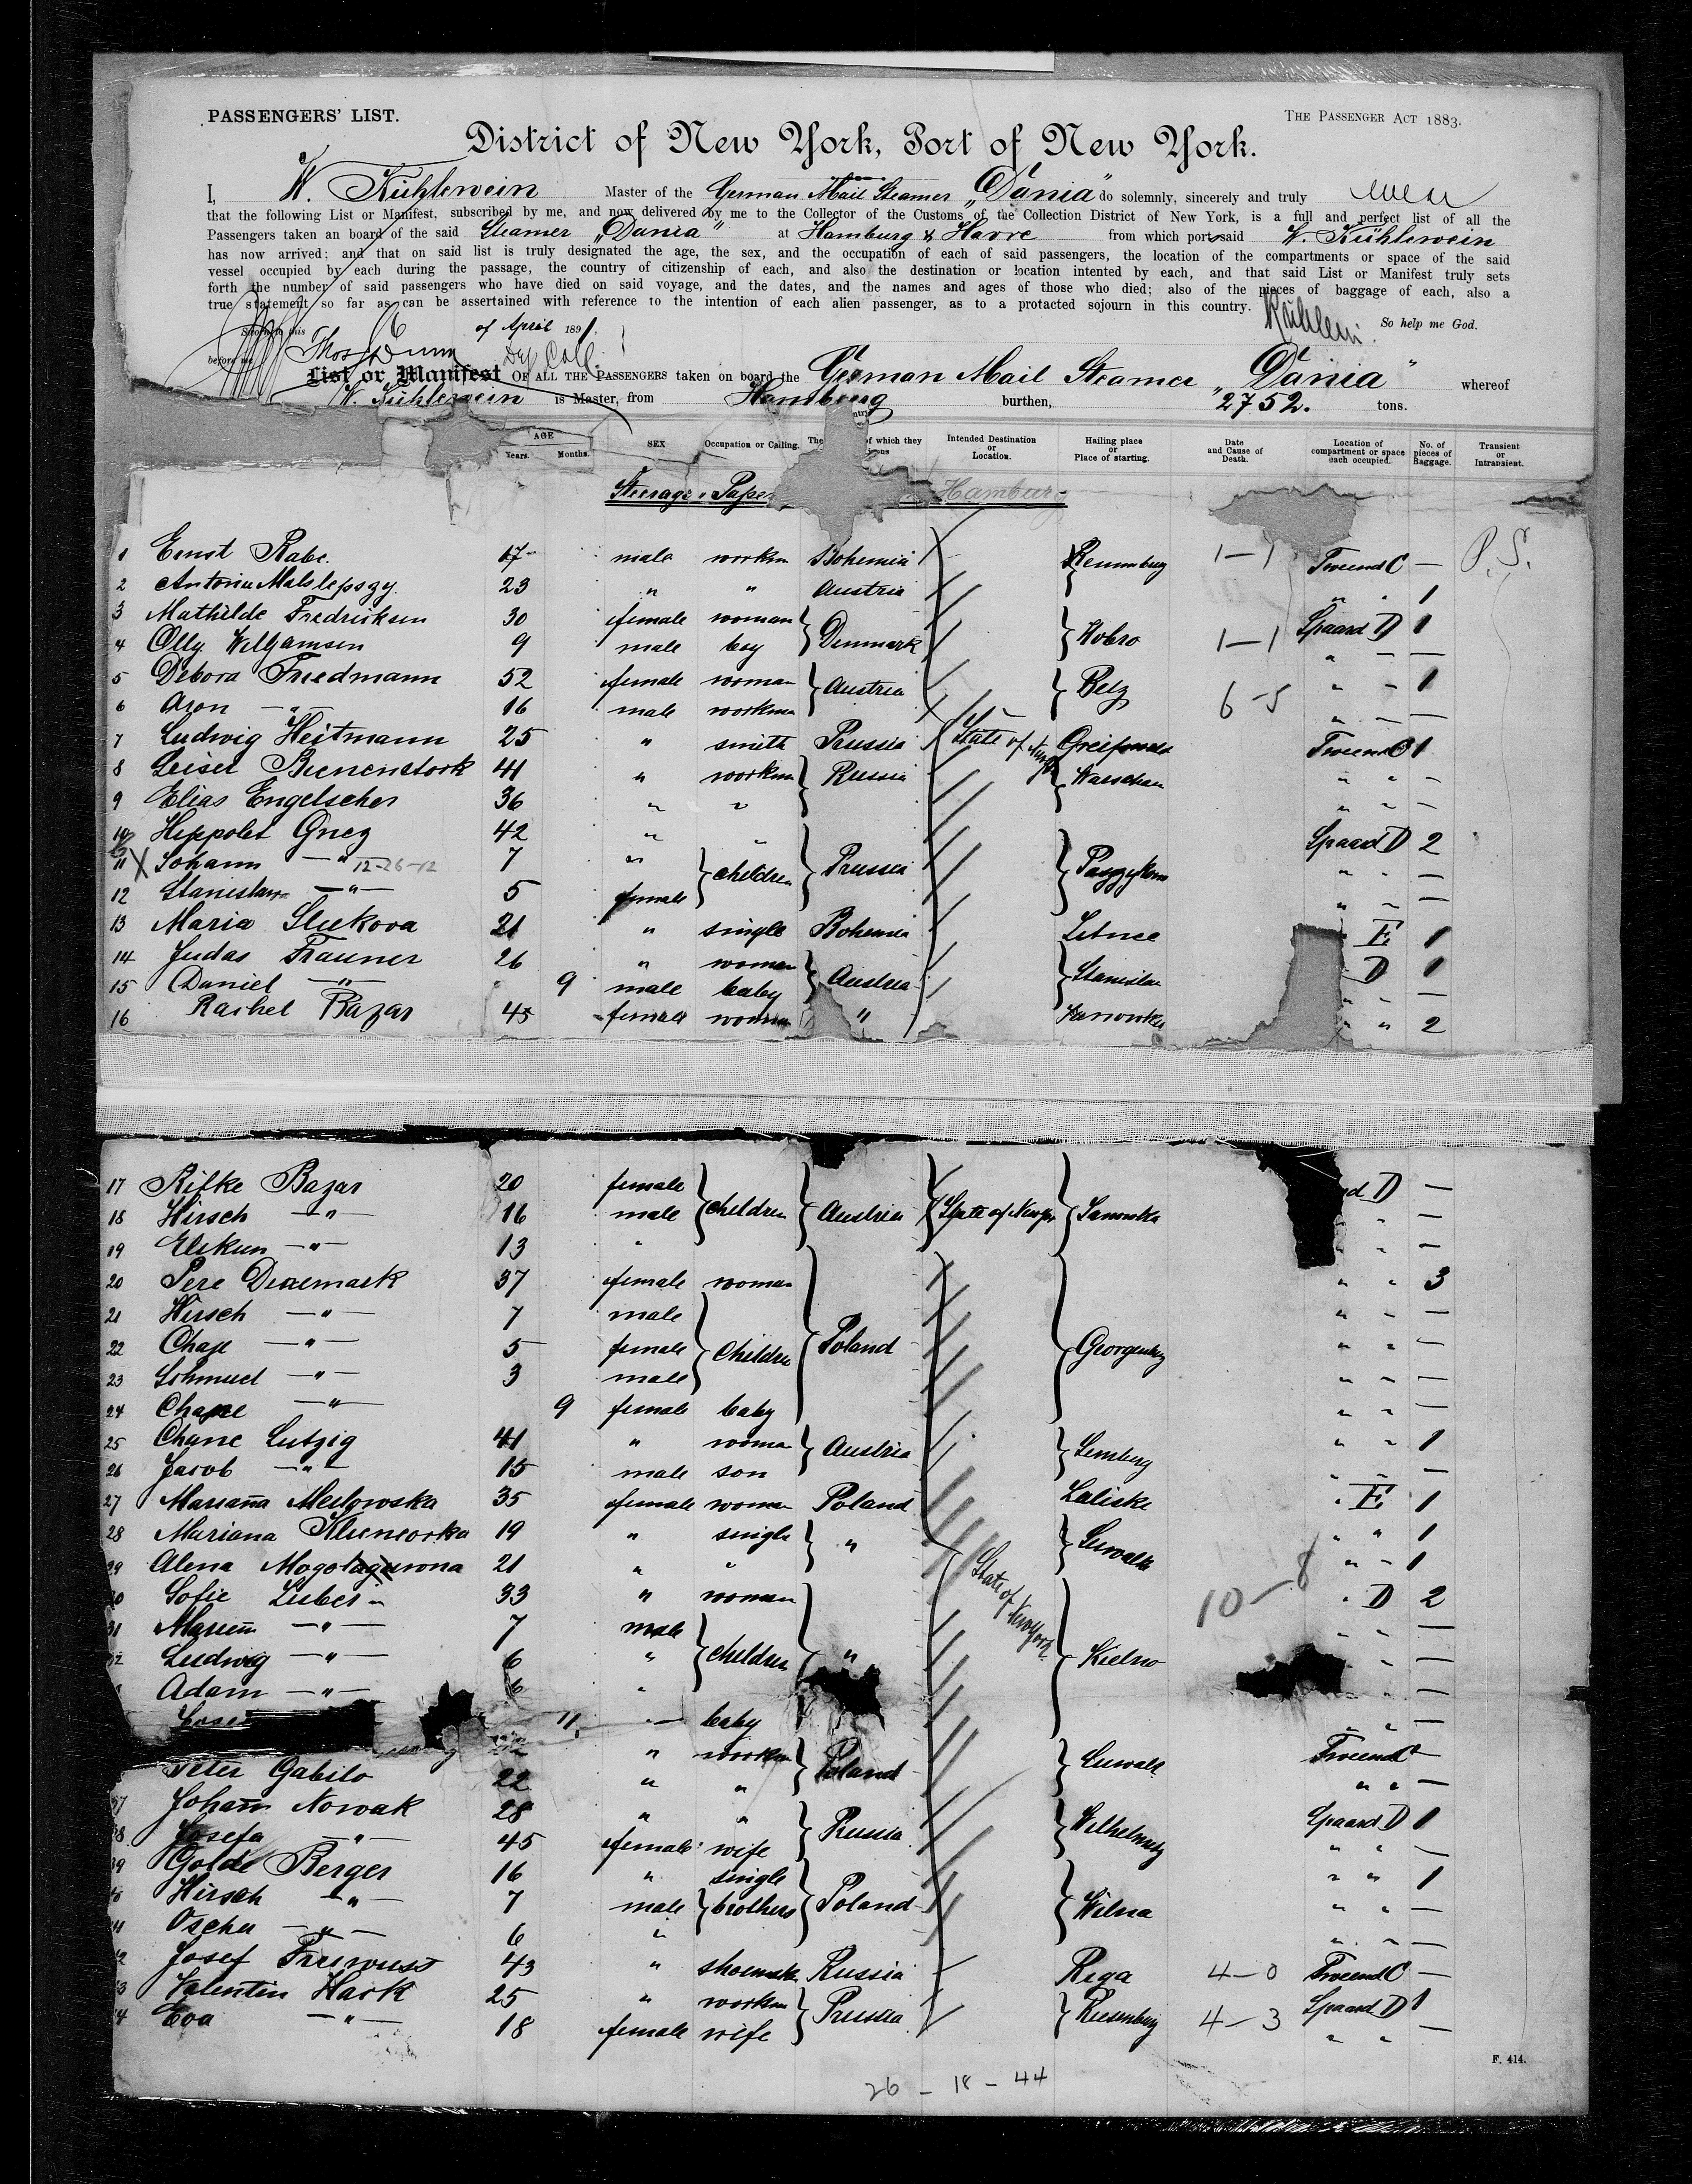 PASSENGERS' LIST.
THE PASSENGER ACT 1883.
District of New York, Port of New York.
I, W. Kühlewein Master of the German Mail Steamer „Dania" do solemnly, sincerely and truly swear
that the following List or Manifest, subscribed by me, and now delivered by me to the Collector of the Customs of the Collection District of New York, is a full and perfect list of all the
Passengers taken an board of the said Steamer „Dania" at Hamburg & Havre from which port said W. Kühlewein
has now arrived; and that on said list is truly designated the age, the sex, and the occupation of each of said passengers, the location of the compartments or space of the said
vessel occupied by each during the passage, the country of citizenship of each, and also the destination or location intented by each, and that said List or Manifest truly sets
forth the number of said passengers who have died on said voyage, and the dates, and the names and ages of those who died; also of the pieces of baggage of each, also a
true statement so far as can be assertained with reference to the intention of each alien passenger, as to a protacted sojourn in this country. Kühlew. So help me God.
Sworn to this 6 of April 1891.
before me Thos Dunn Dep Coll.
List or Manifest OF ALL THE PASSENGERS taken on board the German Mail Steamer „Dania" whereof
W. Kühlewein is Master, from Hamburg burthen, 2752. tons.
AGE Years. Months. SEX Occupation or Calling. The of which they Intended Destination or Location. Hailing place or Place of starting. Date and Cause of Death. Location of compartment or space each occupied. No. of pieces of Baggage. Transient or Intransient.
Steerage Hamburg
1 Ernst Rabe. 17 male workm Bohemia 1-1 Tweend C — P.S.
2 23 " " Austria " " 1
3 Mathilde Fredriksen 30 female woman } Denmark } Hobro Spaard D 1
4 Olly Willjamsen 9 male boy 1-1 " — —
5 Debora Friedmann 52 female woman } Austria } Belz " — 1
6 Aron —"— 16 male workman 6-5 " — —
7 Ludwig Heitmann 25 " smith Prussia State of Tweend C 1
8 Leiser Bienenstork 41 " workm } Russia } Warschau " " —
9 Elias Engelscher 36 " " " " —
10 Hippolet Gnez 42 " " } Prussia Spaard D 2
11 X Johann —"— 12-26-12 7 " } children " " —
12 Stanislaw —"— 5 female " " —
13 Maria 21 " single Bohemia E 1
14 Judas Frauner 26 " woman } Austria } Stanislau D 1
15 Daniel —"— 9 male baby " " —
16 Rachel Bazar 45 female woman " " " 2
17 Rifke Bazar 20 female } children } Austria State of New Yor D —
18 Hirsch —"— 16 male " —
19 Elskun —"— 13 " " —
20 Pere Denemark 37 female woman } Poland } Georgenbg " " 3
21 Hirsch —"— 7 male } children " " —
22 Chaje —"— 5 female " " —
23 Schmuel —"— 3 male " " —
24 —"— 9 female baby " " —
25 Chane Lutzig 41 " woman } Austria } Lemberg " " 1
26 Jacob —"— 15 male son " " —
27 Mariana Meilowska 35 female woman Poland " E 1
28 Mariana 19 " single } " } Suwalk " " 1
29 Alena 21 " " " — 1
30 33 " woman } " State of New York } Kielno 10-8 " D 2
31 —"— 7 male } children " " —
32 Ludwig —"— 6 " " —
Adam —"— 6 " " —
Jose 11 — baby " " —
" workm } Poland } Suwalk Tweend C —
Peter Gabilo 22 " " " " —
37 Johann Nowak 28 " " } Russia Spaard D 1
38 Josefa —"— 45 female wife " " —
39 Golde Berger 16 " single } Poland } Wilna " " 1
40 Hirsch —"— 7 male } brothers " " —
41 Oscher —"— 6 " " " —
42 Josef 43 " shoemak. Russia Riga 4-0 Tweend C —
43 Valentin Hark 25 " workm } Prussia } Riesenburg Spaard D 1
44 Eva —"— 18 female wife 4-3 " " —
F. 414.
26 - 18 - 44